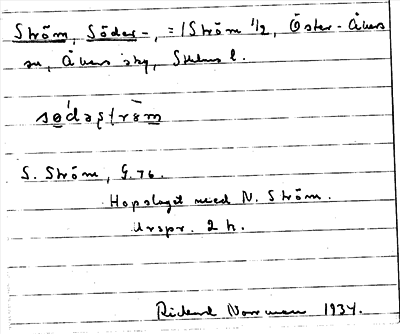 Ström, Söder-, = / Ström 1/2, Öster-Åkers
sn, Åkers skg, Sthlms l.
sǿdəʂtrø̄m
S. Ström, G. 76.
Hopslaget med N. Ström.
Urspr. 2 h.
Rickard Norrman 1934.